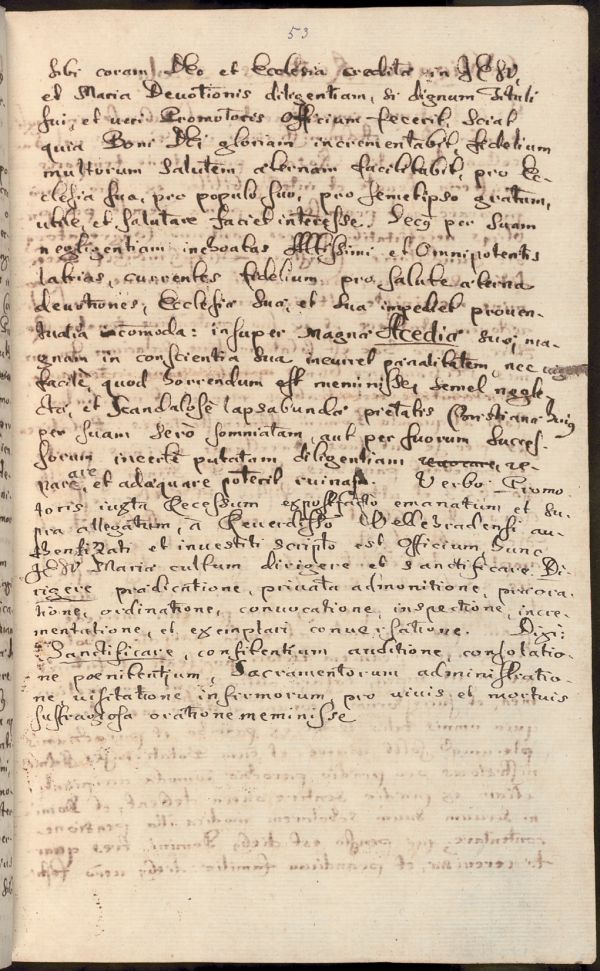 53
sibi coram DEo et Ecclesia creditæ in JESV,
et Maria Devotionis diligentiam, si dignum Tituli
sui, et veri Promotoris Officium fecerit, Sciat
quia Boni DEi gloriam incrementabit, fidelium
multorum Salutem æternam facilitabit, pro Ec-
clesia sua, pro populo suo, pro semetipso gratum,
utile, et salutare faciet interesse. Secus per Suam
negligentiam inchoatas Altissimi et Omnipotentis
latrias, currentes fidelium pro salute æterna
devotiones, Ecclesiæ Suæ, et Sua impediet proven-
tualia incomoda: insuper magnæ Acediæ suæ, ma-
gnam in conscientia sua incurret
facile, quod horrendum est meminisse, semel negle-
ctæ, et Scandalose lapsabundæ pietatis Christianæ hujus
per suam sero somniatam, aut per suorum Succes-
sorum incerte putatam diligentiam revocare, re-
parare, et adæquare poterit ruinas. Verbo: Promo-
toris juxta Recessum ex post facto emanatum et su-
pra allegatum, a Reverdissimo au-
thentizati et investiti scripto est Officium, hunc
JESV Mariæ cultum dirigere et sanctificare. Di-
rigere prædicatione, privata admonitione, procura-
tione, ordinatione, convocatione, inspectione, incre-
mentatione, et exemplari conversatione. Dixi:
Sanctificare, confitentium auditione, consolatio-
ne pœnitentium, Sacramentorum administratio-
ne visitatione infirmorum, pro vivis et mortuis
suffragiosa oratione meminisse